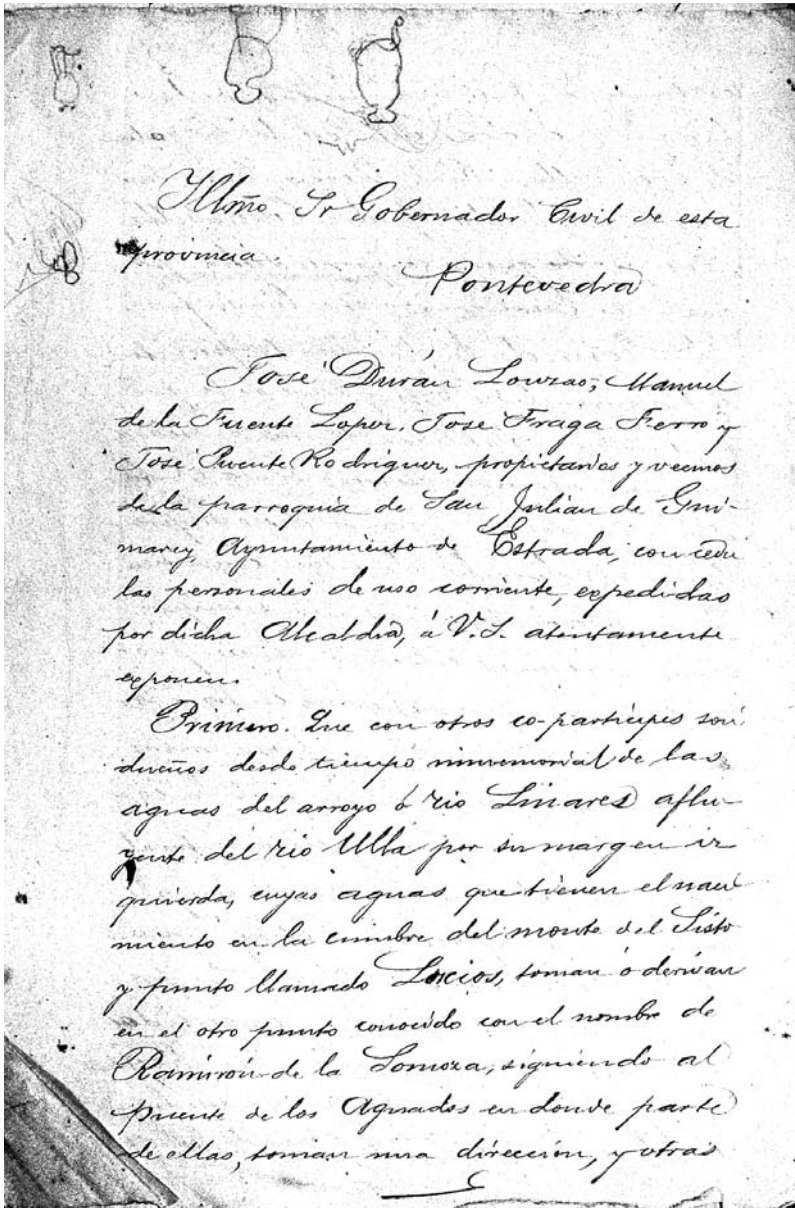 Illmo. Sr Gobernador Civil de esta
provincia.
Pontevedra
José Durán Louzao, Manuel
de la Fuente Lopez, José Fraga Ferro y
José Puente Rodriguez, propietarios y vecinos
de la parroquia de San Julian de Gui-
marey, Ayuntamiento de Estrada, con cedu
las personales de uso corriente, expedidas
por dicha Alcaldia, á V.S. atentamente
exponen.
Primero. Que con otros co-participes son
dueños desde tiempo inmemorial de las
aguas del arroyo ó rio Linares aflu-
yente del rio Ulla por su margen iz
quierda, cuyas aguas que tienen el naci
miento en la cumbre del monte del Sisto
y punto llamado Lucios, toman ó derivan
en el otro punto conocido con el nombre de
Ramirón de la Somoza, siguiendo al
Puente de los Aguados en donde parte
de ellas, toman una dirección, y otras